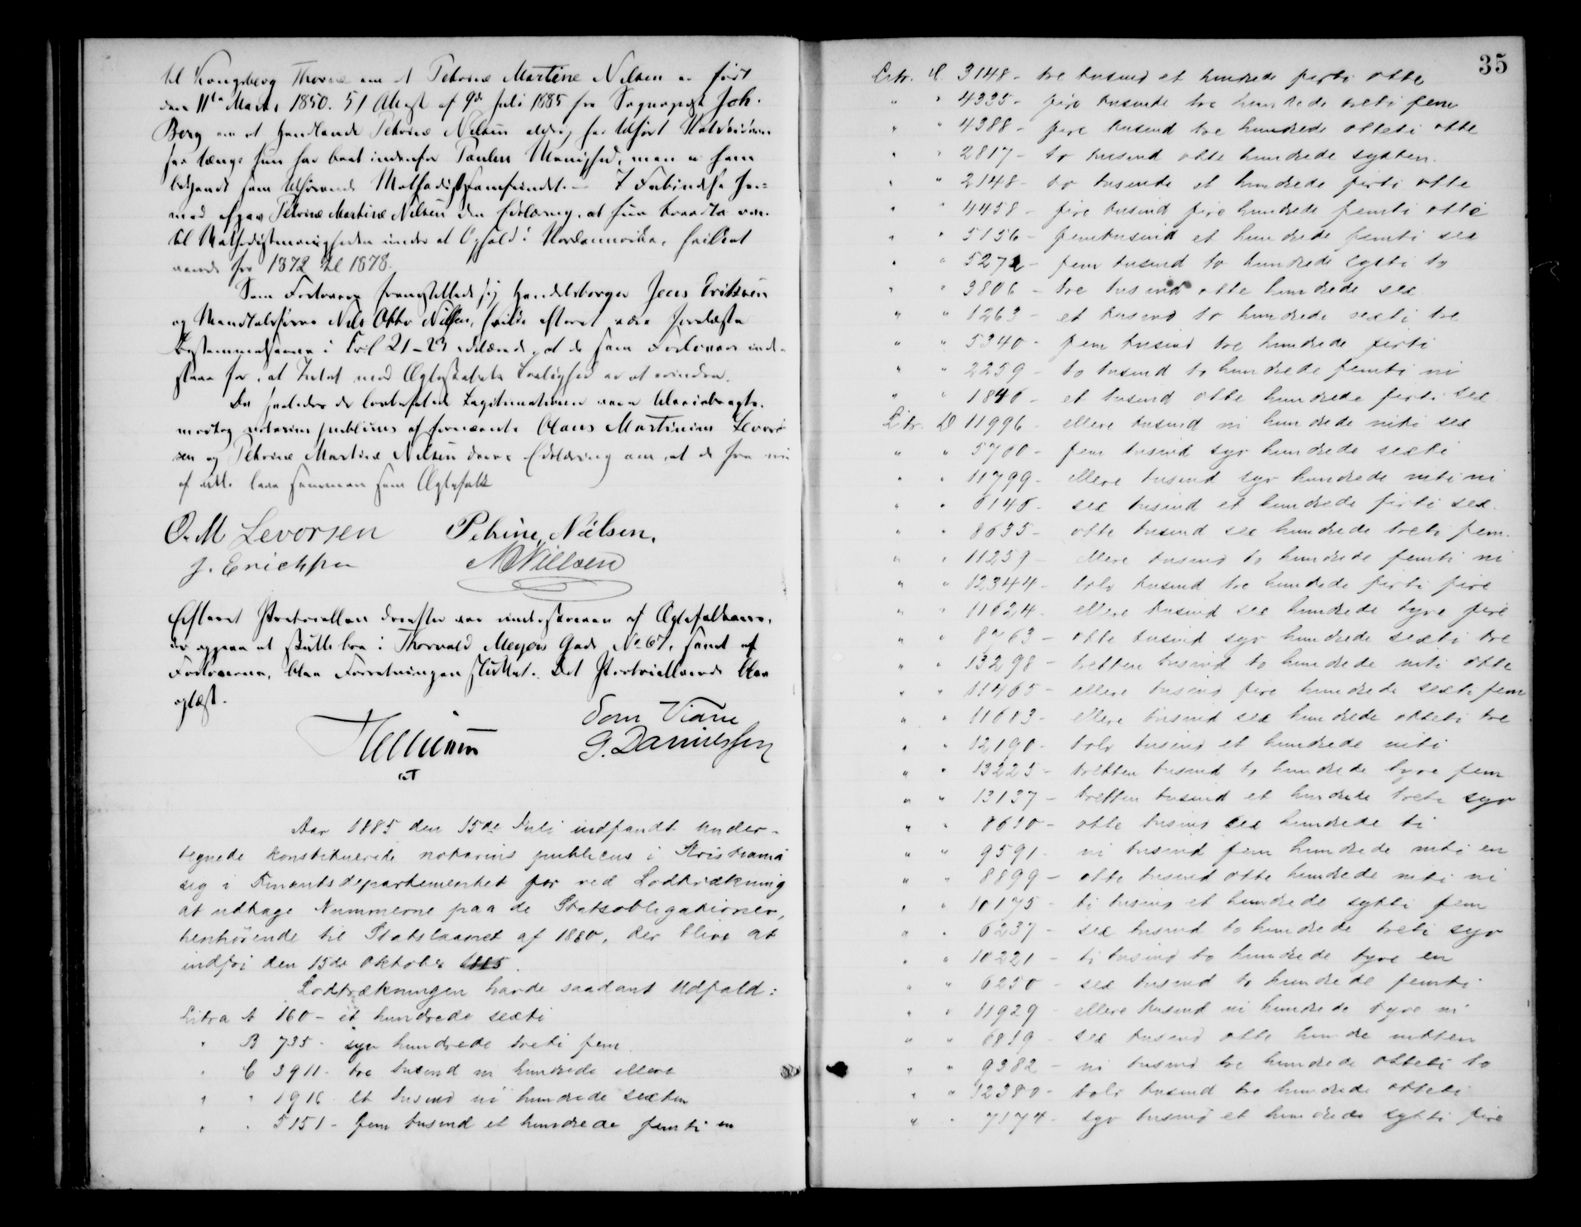 til Kongsberg Thorne om at Petrine Martine Nilsen er født
den 11te Marts 1850. 5) Attest af 9de Juli 1885 fra Sognepræst Joh.
Berg om at Petrine Nilsen aldrig har
saa længe hun har boet indenfor Paulus Menighed, men er ham
bekjendt som Methodistsamfundet. I Forbindelse her-
med afgav Petrine Martine Nilsen den Erklæring, at hun
til Methodistmenigheden under et Ophold i Nordamerika,
fra 1872 til 1878.
Som Forlovere fremstillede sig Handelsborger Jens Eriksen
og Nils Otto Nilsen, hvilke efterat være forelæste
Bestemmelserne i 21-23 erklærede, at de som Forlovere inde-
staar for, at Intet mod Ægteskabets Lovlighed er at erindre.
Da saaledes de lovbefalede Legitimationer vare tilveiebragte,
modtog notarius publicus af fornævnte Olaus Martinius Levor-
sen og Petrine Martine Nilsen deres Erklæring om, at de fra nu
af ville leve sammen som Ægtefolk
O. M Levorsen Petrine Nielsen.
J. Erichsen N Nillsen
Efterat Protocollen derefter var underskreven af Ægtefolkene,
der opgav at skulle bo i Thorvald Meyers Gade No 67, samt af
Forloverne, blev Forretningen sluttet. Det Protocollerede blev
oplæst.
Som Vidne
G. Danielssen
cst
Aar 1885 den 15de Juli indfandt under-
tegnede konstituerede notarius publicus i Kristiania
sig i Finantsdepartementet for ved Lodtrækning
at udtage Nummerne paa de Statsobligationer,
henhørende til Statslaanet af 1880, der blive at
indfri den 15de Oktober 1885.
Lodtrækningen havde saadant Udfald:
Litra A 160 - et hundrede sexti
" B 735 - syv hundrede treti fem
" C 3911 - tre tusend ni hundrede elleve
" " 1916 - et tusend ni hundrede sexten
" " 5151 - fem tusend et hundrede femti en
35
Litr. C 3148 - tre tusend et hundrede firti otte
" " 4335 - fire tusende tre hundrede treti fem
" " 4388 - fire tusend tre hundrede otteti otte
" " 2817 - to tusend otte hundrede sytten
" " 2148 - to tusende et hundrede firti otte
" " 4458 - fire tusend fire hundrede femti otte
" " 5156 - fem tusend et hundrede femti sex
" " 5272 - fem tusend to hundrede sytti to
" " 3806 - tre tusend otte hundrede sex
" " 1263 - et tusend to hundrede sexti tre
" " 5340 - fem tusend tre hundrede firti
" " 2259 - to tusend to hundrede femti ni
" " 1846 - et tusend otte hundrede firti sex
Litr. D 11996 - elleve tusend ni hundrede niti sex
" " 5760 - fem tusend syv hundrede sexti
" " 11799 - elleve tusend syv hundrede niti ni
" " 6146 - sex tusend et hundrede firti sex
" " 8635 - otte tusend sex hundrede treti fem
" " 11259 - elleve tusend to hundrede femti ni
" " 12344 - tolv tusend tre hundrede firti fire
" " 11624 - elleve tusend sex hundrede tyve fire
" " 8763 - otte tusend syv hundrede sexti tre
" " 13298 - tretten tusend to hundrede niti otte
" " 11465 - elleve tusend fire hundrede sexti fem
" " 11683 - elleve tusend sex hundrede otteti tre
" " 12190 - tolv tusend et hundrede niti
" " 13225 - tretten tusend to hundrede tyve fem
" " 13137 - tretten tusend et hundrede treti syv
" " 8610 - otte tusend sex hundrede ti
" " 9591 - ni tusend fem hundrede niti en
" " 8899 - otte tusend otte hundrede niti ni
" " 10175 - ti tusend et hundrede sytti fem
" " 6237 - sex tusend to hundrede treti syv
" " 10221 - ti tusend to hundrede tyve en
" " 6250 - sex tusend to hundrede femti
" " 11929 - elleve tusend ni hundrede tyve ni
" " 6819 - sex tusend otte hundrede nitten
" " 9382 - ni tusend tre hundrede otteti to
" " 12380 - tolv tusend tre hundrede otteti
" " 7174 - syv tusend et hundrede sytti fire